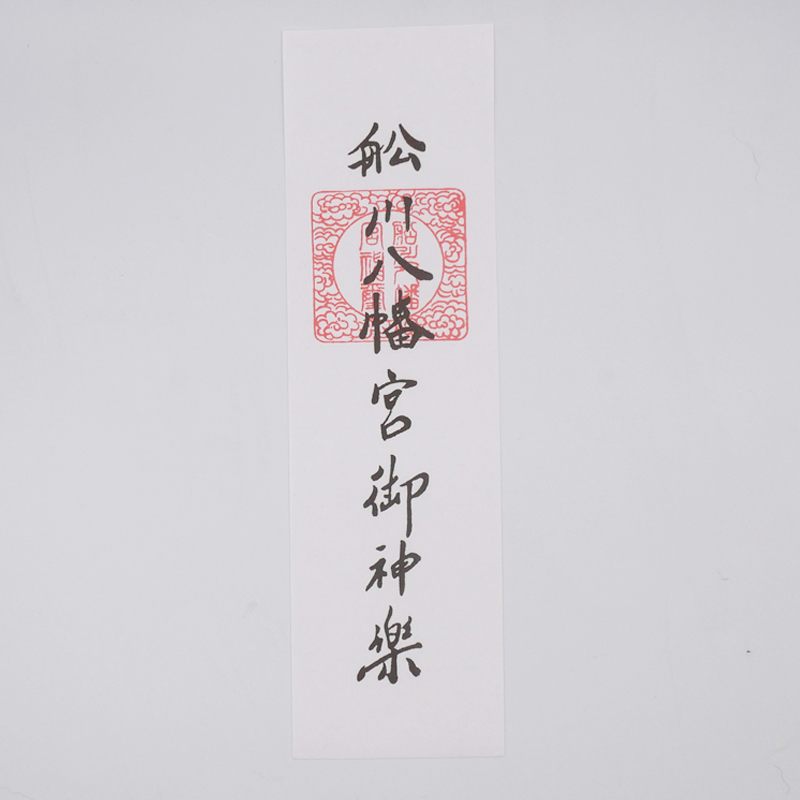 舩川八幡宮御神樂